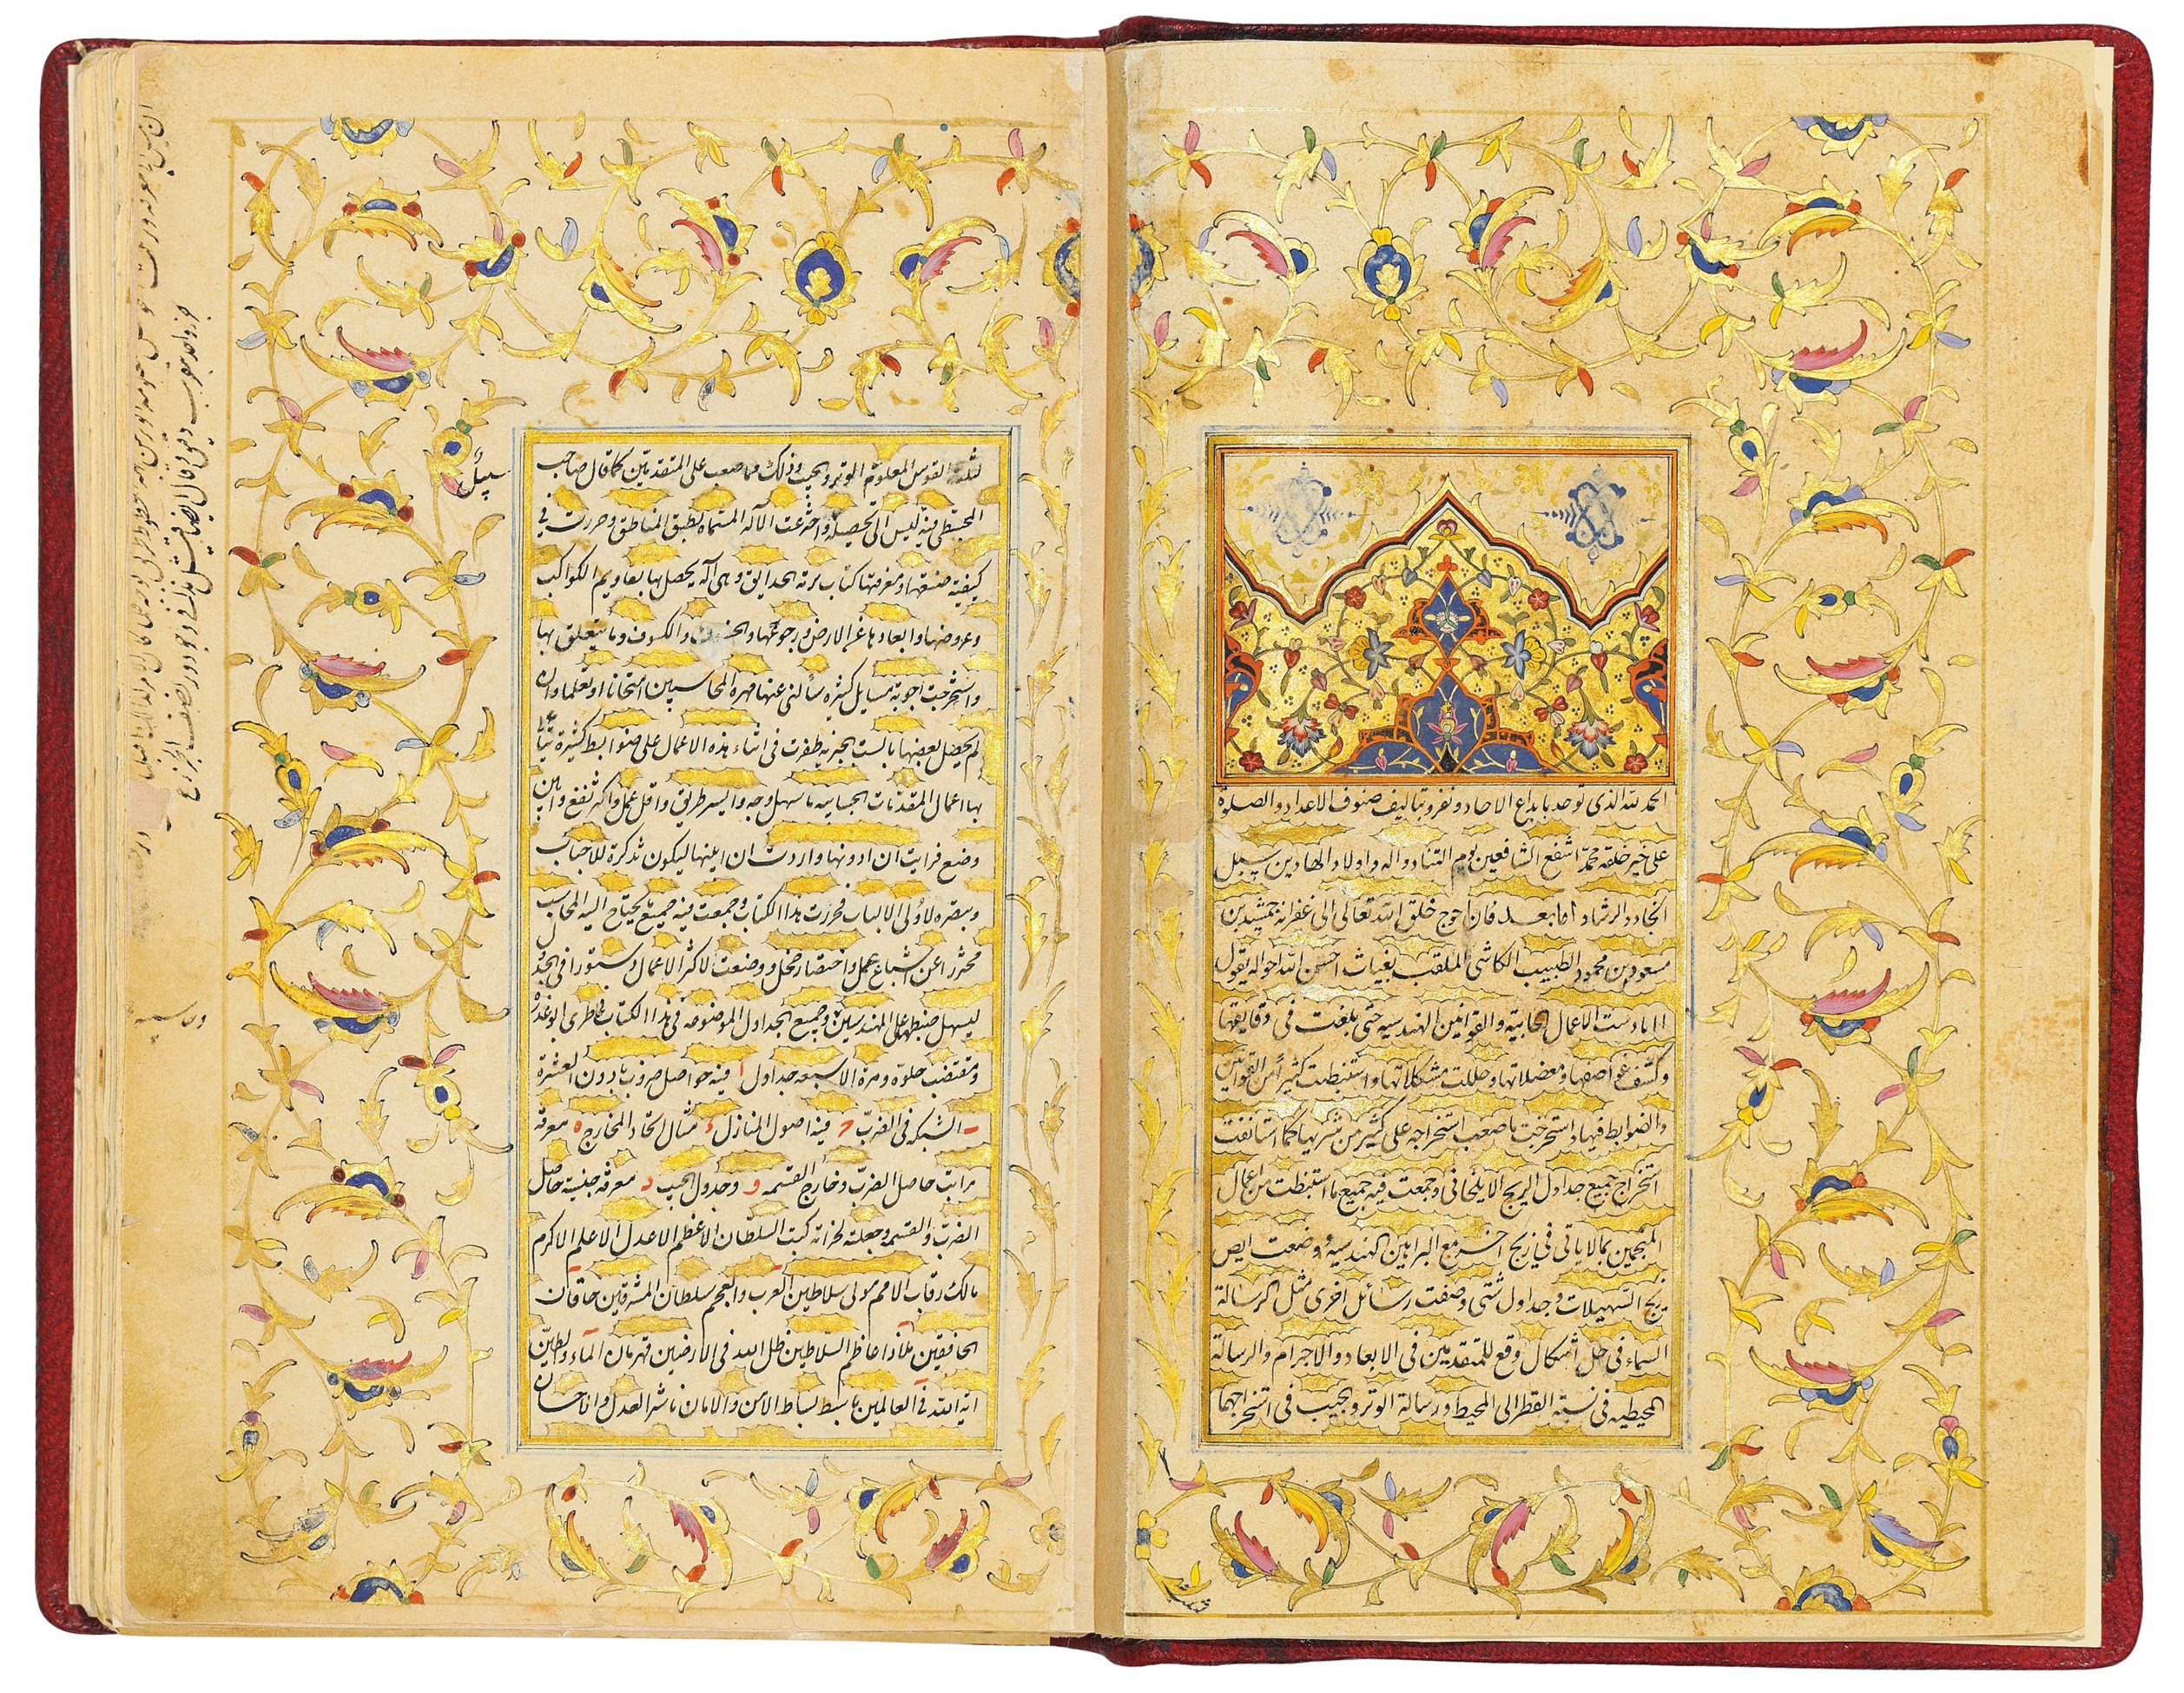 الحمد لله الذی توحد بابداع الاحاد وتفرد بتالیف صنوف الاعداد والصلوة
علی خیر خلقه محمد اشفع الشافعین یوم التناد واله واولاد الهادین سبل
الرشاد اما بعد فان احوج خلق الله تعالی الی غفرانه جمشید بن
مسعود بن محمود الطبیب الکاشی الملقب بغیاث احسن الله احواله یقول
الاعمال الحسابیة والقوانین الهندسیه حتی بلغت فی دقایقها
وکشف غوامضها ومعضلاتها وحللت مشکلاتها واستنبطت کثیرا من القوانین
والضوابط فیها واستخرجت ما صعب استخراجه علی کثیر من
استخراج جمیع جداول الزیج الایلخانی وجمعت فیه جمیع ما استنبطت من اعمال
المنجمین مما لایاتی فی زیج اخر مع البراهین الهندسیه ووضعت ایض
زیج التسهیلات وجداول شتی وصنفت رسائل اخری مثل الرسالة
السماء فی حل اشکال وقع للمتقدمین فی الابعاد والاجرام والرسالة
المحیطیه فی نسبة القطر الی المحیط ورسالة الوتر والجیب فی استخراجهما
لثلث القوس المعلوم الوتر والجیب وذلک مما صعب علی المتقدمین کما قال صاحب
المجسطی فیه لیس الی تحصیله واخترعت الالة المسماه بطبق المناطق وحررت فی
کیفیة صنعتها ومعرفتها کتاب نزهة الحدایق وهی آلة یحصل بها تقاویم الکواکب
وعروضها وابعادها عن الارض ورجوعها والخسوف والکسوف وما یتعلق بها
واستخرجت اجوبة مسایل کثیره سألنی عنها مهرة المحاسبین امتحانا او تعلما وان
لم یحصل بعضها بالست الجبریه ظفرت فی اثناء هذه الاعمال علی ضوابط کثیرة
بها اعمال المقدمات الحسابیه باسهل وجه وایسر طریق واقل عمل واکثر نفع وابین
وضع فرایت ان ادونها واردت ان ابینها لیکون تذکرة للاحباب
وتبصره لاولی الالباب فحررت هذا الکتاب وجمعت فیه جمیع ما یحتاج الیه المحاسب
محترزا عن اشباع ممل واختصار مخل ووضعت لاکثر الاعمال دستورا فی الجدول
لیسهل ضبطها علی المهندسین وجمیع الجداول الموضوعه فی هذا الکتاب
الا سبعه جداول ا فیه حواصل ضروب ما دون العشرة
ب الشبکه فی الضرب ج فیه اصول المنازل د مثال اتحاد المخارج ه معرفة
مراتب حاصل الضرب وخارج القسمه و وجدول الجیب ز معرفة جنسیة حاصل
الضرب والقسمه وجعلته لخزانة کتب السلطان الاعظم الاعدل الاعلم الاکرم
مالک رقاب الامم مولی سلاطین العرب والعجم سلطان المشرقین خاقان
الخافقین ملاذ اعاظم السلاطین ظل الله فی الارضین قهرمان الماء والطین
ایة الله فی العالمین باسط بساط الامن والامان ناشر العدل والاحسان
سبل